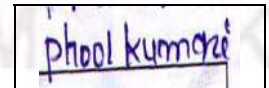 phool kumari